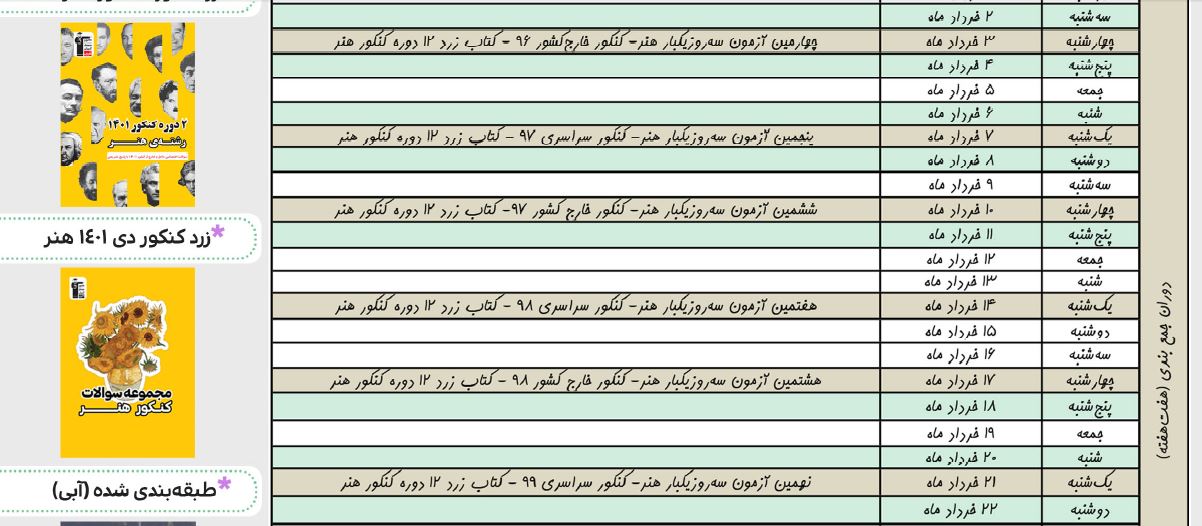 سه‌شنبه ۲ خرداد ماه
چهارشنبه ۳ خرداد ماه چهارمین آزمون سه‌روزیکبار هنر- کنکور خارج‌کشور ۹۶ - کتاب زرد ۱۲ دوره کنکور هنر
پنج‌شنبه ۴ خرداد ماه
جمعه ۵ خرداد ماه
شنبه ۶ خرداد ماه
یک‌شنبه ۷ خرداد ماه پنجمین آزمون سه‌روزیکبار هنر- کنکور سراسری ۹۷ - کتاب زرد ۱۲ دوره کنکور هنر
دوشنبه ۸ خرداد ماه
سه‌شنبه ۹ خرداد ماه
چهارشنبه ۱۰ خرداد ماه ششمین آزمون سه‌روزیکبار هنر- کنکور خارج کشور ۹۷- کتاب زرد ۱۲ دوره کنکور هنر
پنج‌شنبه ۱۱ خرداد ماه
جمعه ۱۲ خرداد ماه
شنبه ۱۳ خرداد ماه
یک‌شنبه ۱۴ خرداد ماه هفتمین آزمون سه‌روزیکبار هنر- کنکور سراسری ۹۸ - کتاب زرد ۱۲ دوره کنکور هنر
دوشنبه ۱۵ خرداد ماه
سه‌شنبه ۱۶ خرداد ماه
چهارشنبه ۱۷ خرداد ماه هشتمین آزمون سه‌روزیکبار هنر- کنکور خارج کشور ۹۸ - کتاب زرد ۱۲ دوره کنکور هنر
پنج‌شنبه ۱۸ خرداد ماه
جمعه ۱۹ خرداد ماه
شنبه ۲۰ خرداد ماه
یک‌شنبه ۲۱ خرداد ماه نهمین آزمون سه‌روزیکبار هنر- کنکور سراسری ۹۹ - کتاب زرد ۱۲ دوره کنکور هنر
دوشنبه ۲۲ خرداد ماه
دوران جمع بندی (هفت‌هفته)
۲ دوره کنکور ۱۴۰۱
رشته‌ی هنر
*زرد کنکور دی ۱۴۰۱ هنر
مجموعه سوالات
کنکور هنر
*طبقه‌بندی شده (آبی)